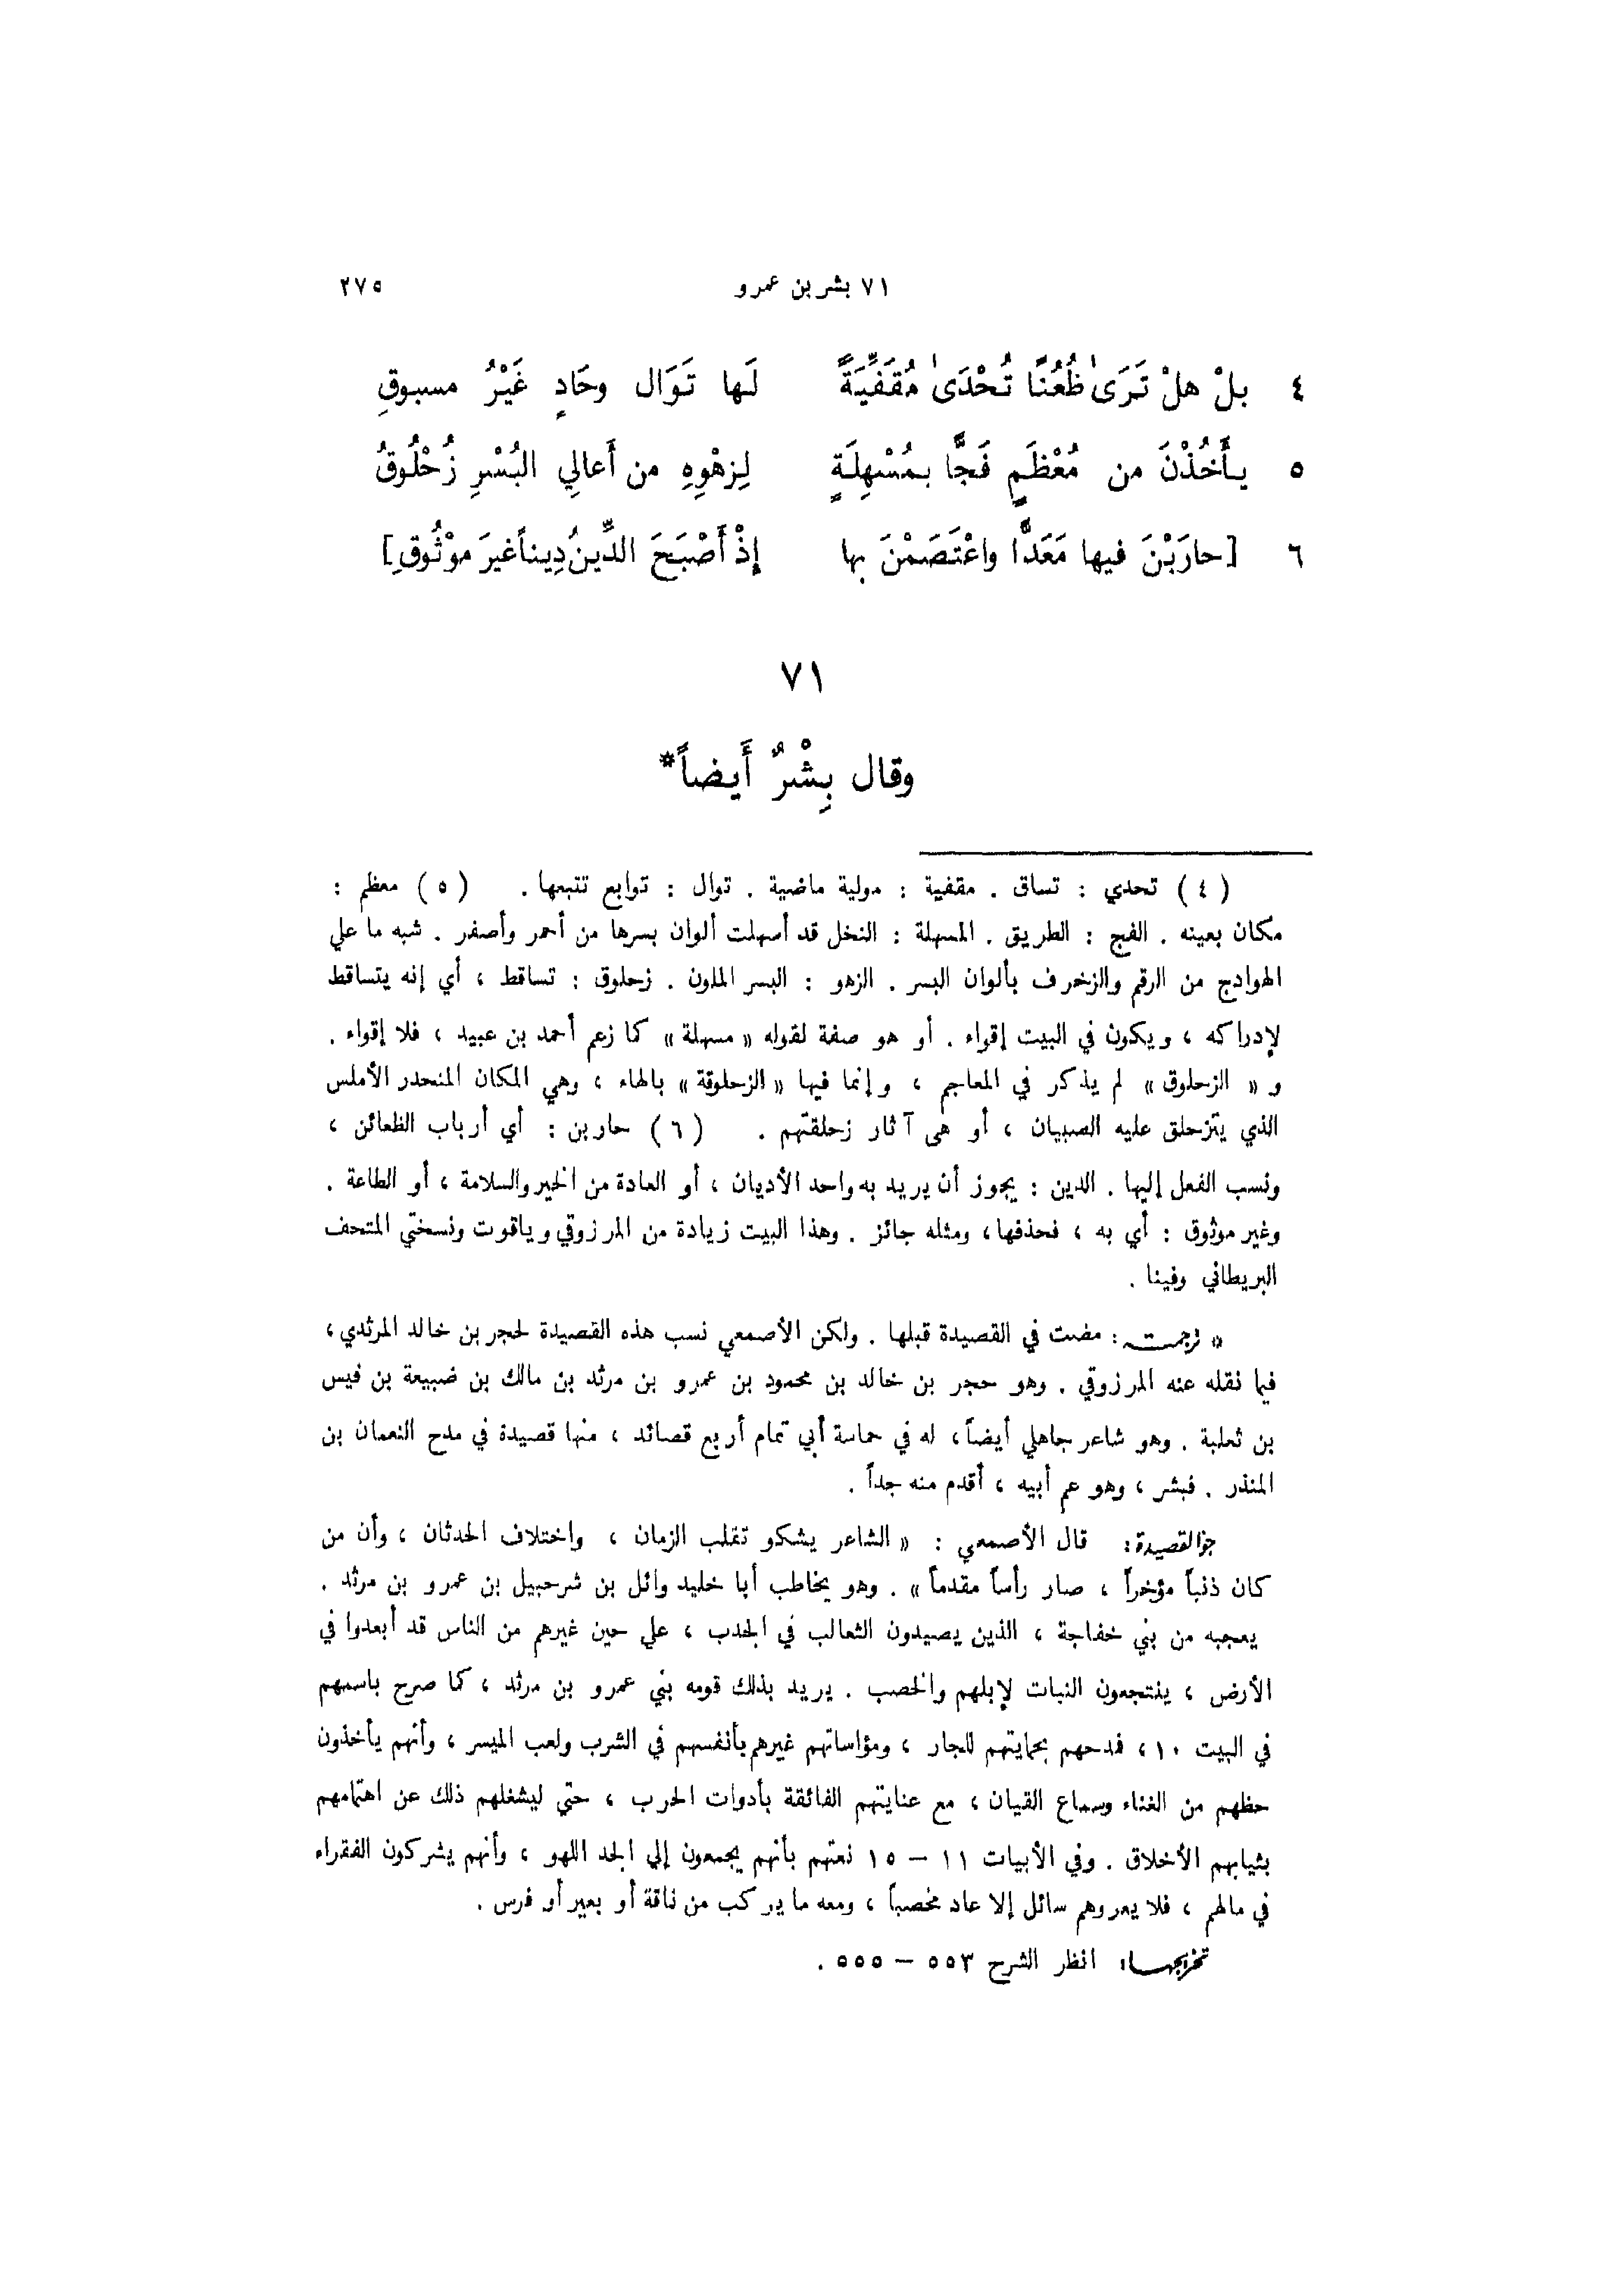 ٧١ بشر بن عمرو ٢٧٥
٤ بلْ هلْ تَرَىٰ ظُعُنًا تُحْدَىٰ مُقَفِّيَةً لَها تَوَال وحَادٍ غَيْرُ مسبوقِ
٥ يأْخُذْنَ من مُعْظَمٍ فَجًّا بمُسْهِلَةٍ لِزهْوِهِ من أَعالِي البُسْرِ زُحْلُوقُ
٦ [حارَبْنَ فيها مَعَدًّا واعْتَصَمْنَ بها إِذْ أَصْبَحَ الدِّينُ دِيناً غيرَ موْثُوقِ]
٧١
وقال بِشْرٌ أَيضاً*
(٤) تحدي : تساق . مقفية : مولية ماضية . توال : توابع تتبعها . (٥) معظم :
مكان بعينه . الفج : الطريق . المسهلة : النخل قد أسهلت ألوان بسرها من أحمر وأصفر . شبه ما علي
الهوادج من الرقم والزخرف بألوان البسر . الزهو : البسر الملون . زحلوق : تساقط ، أي إنه يتساقط
لإدراكه ، ويكون في البيت إقواء . أو هو صفة لقوله « مسهلة » كما زعم أحمد بن عبيد ، فلا إقواء .
و « الزحلوق » لم يذكر في المعاجم ، وإنما فيها « الزحلوقة » بالهاء ، وهي المكان المنحدر الأملس
الذي يتزحلق عليه الصبيان ، أو هى آثار زحلقتهم . (٦) حاربن : أي أرباب الظعائن ،
ونسب الفعل إليها . الدين : يجوز أن يريد به واحد الأديان ، أو العادة من الخير والسلامة ، أو الطاعة .
وغير موثوق : أي به ، فحذفها ، ومثله جائز . وهذا البيت زيادة من المرزوقي وياقوت ونسختي المتحف
البريطاني وفينا .
* ترجمته : مضت في القصيدة قبلها . ولكن الأصمعي نسب هذه القصيدة لحجر بن خالد المرثدي ،
فيما نقله عنه المرزوقي . وهو حجر بن خالد بن محمود بن عمرو بن مرثد بن مالك بن ضبيعة بن قيس
بن ثعلبة . وهو شاعر جاهلي أيضاً ، له في حماسة أبي تمام أربع قصائد ، منها قصيدة في مدح النعمان بن
المنذر . فبشر ، وهو عم أبيه ، أقدم منه جداً .
جو القصيدة : قال الأصمعي : « الشاعر يشكو تقلب الزمان ، واختلاف الحدثان ، وأن من
كان ذنباً مؤخراً ، صار رأساً مقدماً » . وهو يخاطب أبا خليد وائل بن شرحبيل بن عمرو بن مرثد .
يعجبه من بني خفاجة ، الذين يصيدون الثعالب في الجدب ، علي حين غيرهم من الناس قد أبعدوا في
الأرض ، ينتجعون النبات لإبلهم والخصب . يريد بذلك قومه بني عمرو بن مرثد ، كما صرح باسمهم
في البيت ١٠ ، فمدحهم بحمايتهم للجار ، ومؤاساتهم غيرهم بأنفسهم في الشرب ولعب الميسر ، وأنهم يأخذون
حظهم من الغناء وسماع القيان ، مع عنايتهم الفائقة بأدوات الحرب ، حتي ليشغلهم ذلك عن اهتمامهم
بثيابهم الأخلاق . وفي الأبيات ١١ – ١٥ نعتهم بأنهم يجمعون إلي الجد اللهو ، وأنهم يشركون الفقراء
في مالهم ، فلا يعروهم سائل إلا عاد مخصباً ، ومعه ما يركب من ناقة أو بعير أو فرس .
تخريجها : انظر الشرح ٥٥٣ – ٥٥٥ .